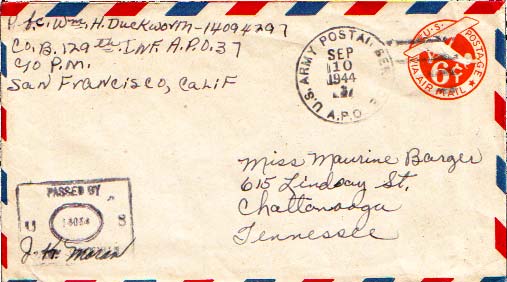 P.f.c. Wm. H. Duckworth-14094297
Co. B. 129th INF. A.P.O. 37
c/o P.M.
San Francisco, Calif
U.S. ARMY POSTAL SER.
SEP
10
1944
A.P.O.
U.S. POSTAGE
6¢
VIA AIR MAIL
Miss Maurine Barger
615 Lindsay St.
Chattanooga
Tennessee
PASSED BY
U S
J. H. Moran